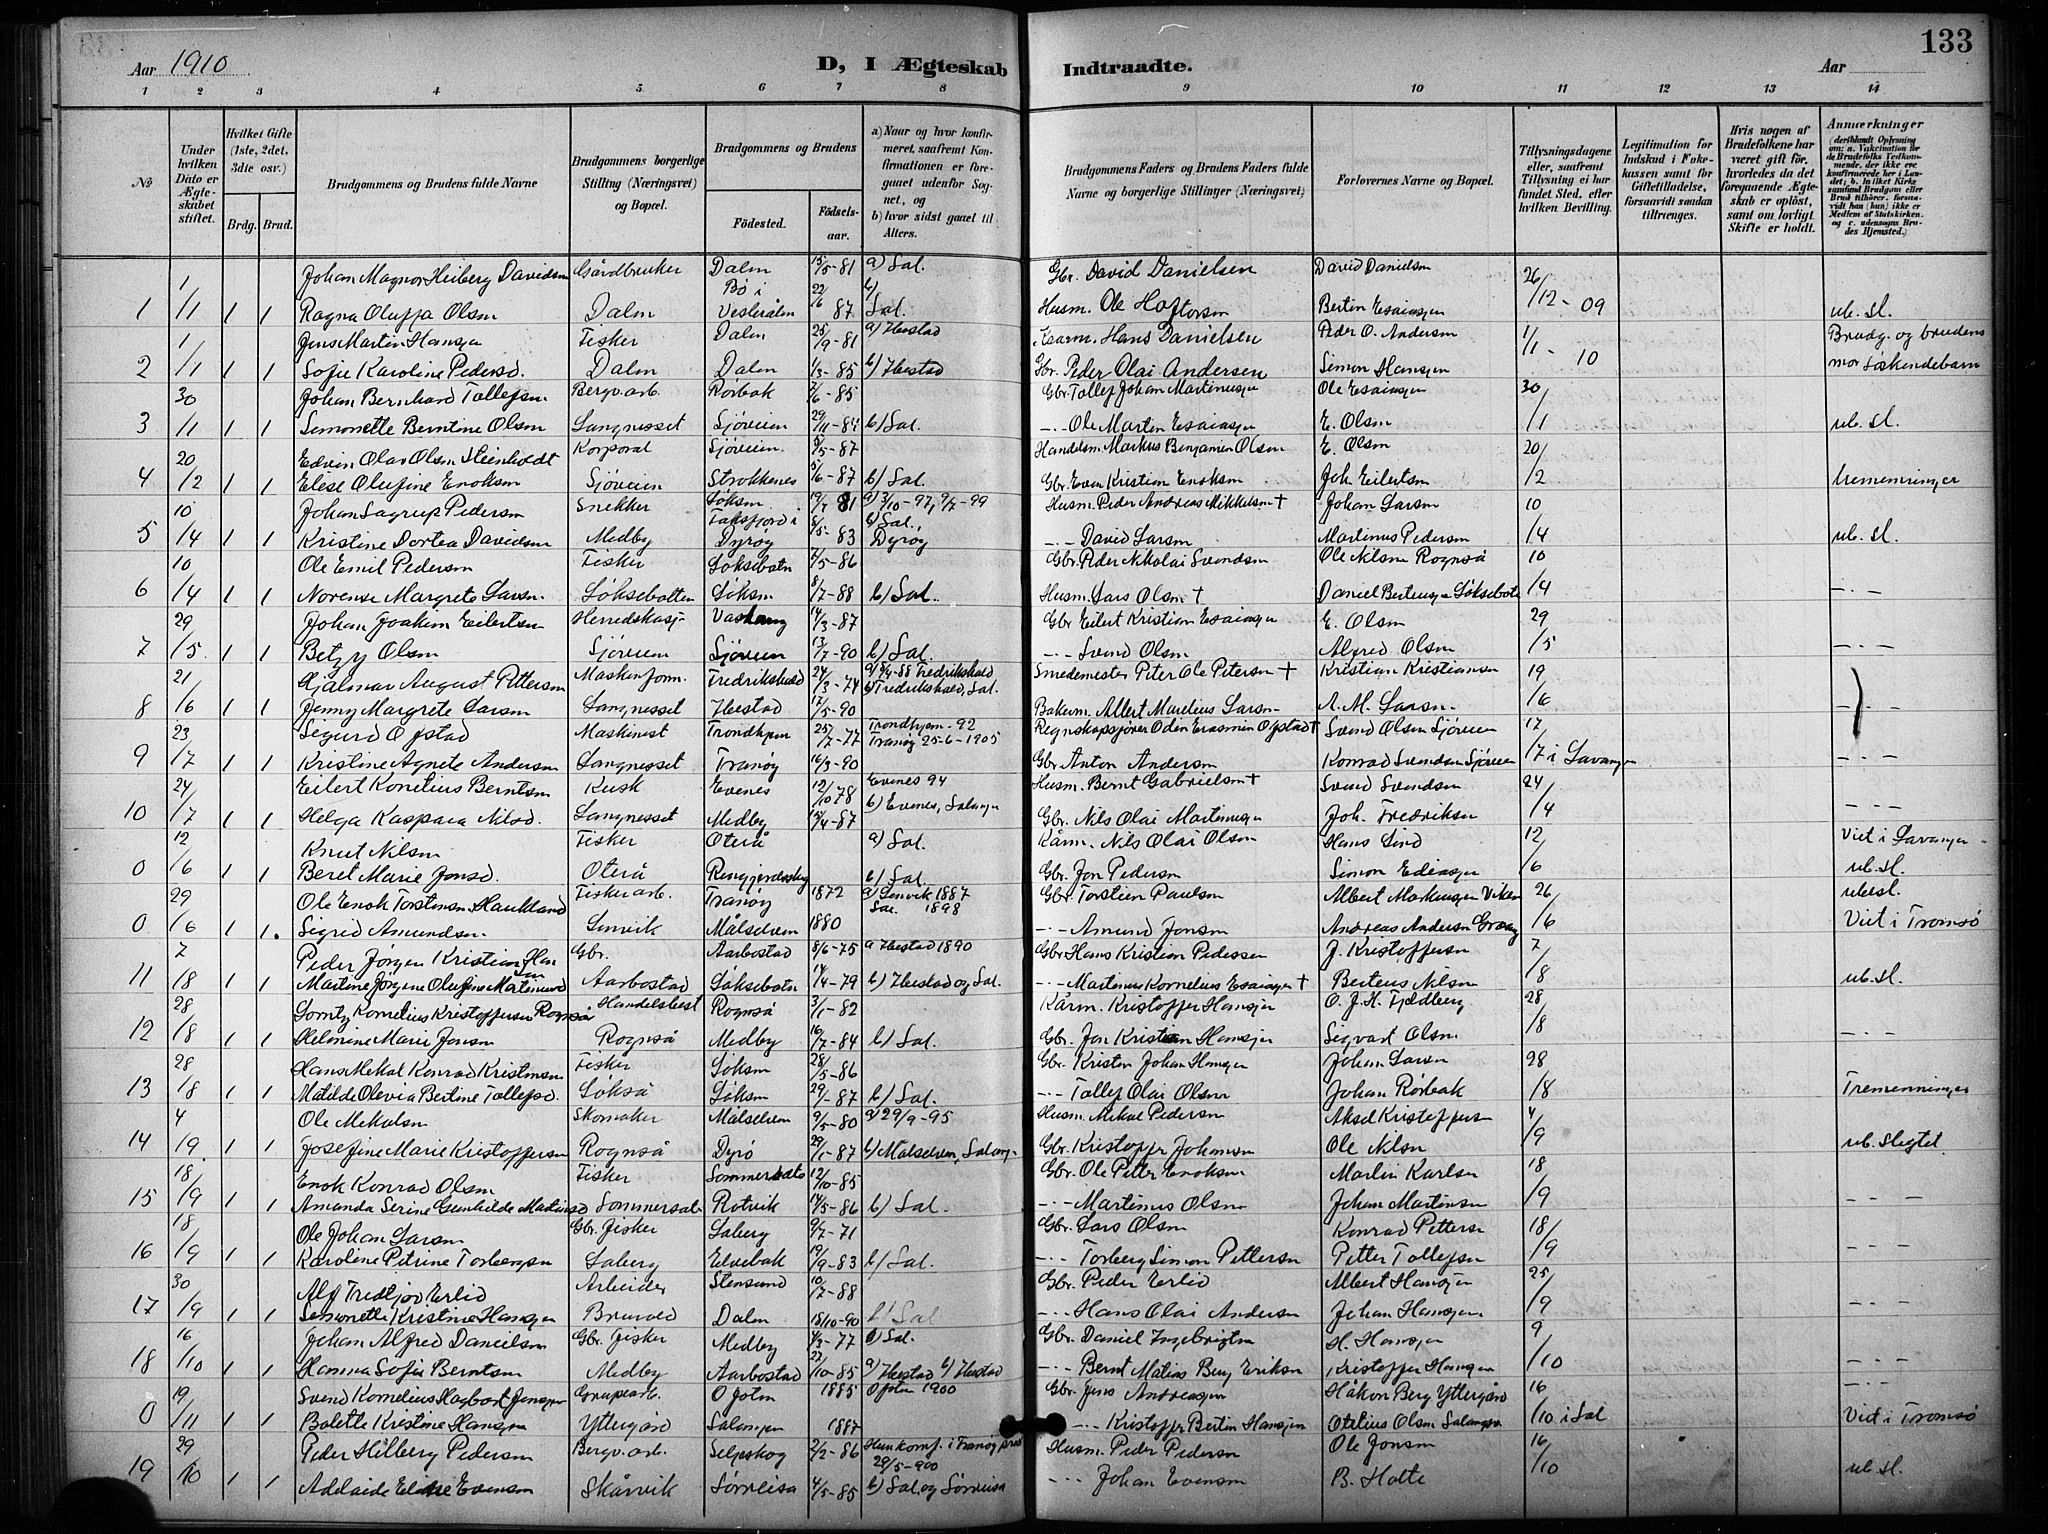 133
Aar 1910
D, I Ægteskab Indtraadte.
Aar
1 2 3 4 5 6 7 8 9 10 11 12 13 14
No
Under hvilken Dato er Ægteskabet stiftet.
Hvilket Gifte (1ste, 2det, 3die osv.)
Brdg. Brud.
Brudgommens og Brudens fulde Navne
Brudgommens borgerlige Stilling (Næringsvei) og Bopæl.
Brudgommens og Brudens
Fødested.
Fødselsaar.
a) Naar og hvor konfirmeret, saafremt Konfirmationen er foregaaet udenfor Sognet, og
b) hvor sidst gaaet til Alters.
Brudgommens Faders og Brudens Faders fulde Navne og borgerlige Stillinger (Næringsvei)
Forlovernes Navne og Bopæl.
Tillysningsdagene eller, saafremt Tillysning ei har fundet Sted, efter hvilken Bevilling.
Legitimation for Indskud i Fokekassen samt for Giftetilladelse, forsaavidt saadan tiltrænges.
Hvis nogen af Brudefolkene har været gift før, hvorledes da det foregaaende Ægteskab er opløst, samt om lovligt Skifte er holdt.
Anmærkninger
Johan Magnor Heiberg Davidsen Gårdbruker Dalen 15/5-81 a) Sal. Gbr. David Danielsen David Danielsen 26/12-09
1 1/1 1 1 Ragna Oluffa Olsen Dalen Bø i Vesterålen 22/6 87 b) Sal. Husm. Ole Hoftorsen Bertin Esaiasen ub. sl.
Jens Martin Hansen Fisker Dalen 25/9-81 a) Ibestad Kaarm. Hans Danielsen Peder O. Andersen 1/1-10 Brudg. og brudens
2 1/1 1 1 Sofie Karoline Pedersd. Dalen Dalen 1/3-85 b) Ibestad Gbr. Peder Olai Andersen Simon Hansen mor Søskendebarn
Johan Bernhard Tollefsen Bergv.arb. Rørbak 7/6-85 Gbr. Tollef Johan Martinusen Ole Esaiasen 30/1
3 30/1 1 1 Simonette Berntine Olsen Langnesset Sjøveien 29/11-84 b) Sal. -"- Ole Martin Esaiasen E. Olsen ub. sl.
Edvin Olav Olsen Steinholdt Korporal Sjøveien 5/5-87 Handelsm. Markus Benjamin Olsen E. Olsen 20/2
4 20/2 1 1 Elise Olufine Enoksen Sjøveien Strokkenes 5/6-87 b) Sal. Gbr. Even Kristian Enoksen Joh. Eilertsen tremenninger
Johan Lagrup Pedersen Snekker Løksen 19/7 81 a) 3/10-97, 9/7-99 Husm. Peder Andreas Mikkelsen † Johan Larsen 10/4
5 10/4 1 1 Kristine Dortea Davidsen Medby Faksfjord i Dyrøy 8/5-83 b) Sal., Dyrøy -"- David Larsen Martinus Pedersen ub. sl.
Ole Emil Pedersen Fisker Løksebotn 7/5-86 Gbr. Peder Nikolai Svendsen Ole Nilsen Rognså 10/4
6 10/4 1 1 Norense Margrete Larsen Løksebotten Løksen 8/7-88 b) Sal. Husm. Lars Olsen † Daniel Berteusen Løksebotn -"-
Johan Joakim Eilertsen Herredskasj. 14/3-87 Gbr. Eilert Kristian Esaiasen E. Olsen 29/5
7 29/5 1 1 Betzy Olsen Sjøveien Sjøveien 13/7-90 b) Sal. -"- Svend Olsen Alfred Olsen -"-
Hjalmar August Pettersen Maskinform. Fredrikshald 24/3-74 a) 8/4-88 Fredrikshald Smedemester Peter Ole Petersen † Kristian Kristiansen 19/6
8 21/6 1 1 Jenny Margrete Larsen Langnesset Ibestad 17/5-90 b) Fredrikshald, Sal. Bakerm. Albert Marelius Larsen A. M. Larsen -"-
Sigurd Ofstad Maskinist Trondhjem 25/7-77 Trondhjem-92 Regnskapsfører Odin Erasmin Ofstad † Svend Olsen Sjøveien 17/7 i Lavangen
9 23/7 1 1 Kristine Agnete Andersen Langnesset Tranøy 16/3-90 Tranøy 25-6-1905 Gbr. Anton Andersen Konrad Svendsen Sjøveien -"-
Eilert Konelius Berntsen Kusk Evenes 12/10 78 Evenes 94 Husm. Bernt Gabrielsen † Svend Svendsen 24/4
10 24/7 1 1 Helga Kaspara Nilsd. Langnesset Medby 15/4-87 b) Evenes, Salangen Gbr. Nils Olai Martinusen Joh. Fredriksen -"-
Knut Nilsen Fisker Oterå a) Sal. Kårm. Nils Olai Olsen Hans Lind 12/6 Viet i Lavangen
0 12/6 1 1 Beret Marie Jonsd. Oterå b) Sal. Gbr. Jon Pedersen Simon Ediasen ub. sl.
Ole Enok Torstensen Haukland Fiskerarb. Tranøy 1872 a) Lenvik 1887 Gbr. Torstein Paulsen Albert Markusen Viken 26/6 ub. sl.
0 29/6 1 1. Sigrid Amundsen Lenvik Målselven 1880 Sal. 1898 -"- Amund Jonsen Andreas Andersen Viet i Tromsø
Peder Jørgen Kristian Hansen Gbr. Aarbostad 8/6-75 a Ibestad 1890 Gbr. Hans Kristian Pedersen J. Kristoffersen 7/8
11 7/8 1 1 Martine Jørgine Olufine Martinusd. Aarbostad Løksebotn 14/4-79 b) Ibestad og Sal. -"- Martinus Kornelius Esaiasen † Berteus Nilsen ub. sl.
Lorntz Kornelius Kristoffersen Rognså Handelsbest. Rognså 3/1-82 Kårm. Kristoffer Hansen O. J. H. Fjeldberg 28/8
12 28/8 1 1 Helmine Marie Jonsen Rognså Medby 16/7-84 b) Sal. Gbr. Jon Kristian Hansen Sigvart Olsen -"-
Hans Mekal Konrad Kristensen Fisker Løksen 28/5-86 Gbr. Kristen Johan Hansen Johan Larsen 28/8
13 28/8 1 1 Matilde Olevia Bertine Tollefsd. Løkså Løksen 29/1-87 b) Sal. -"- Tollef Olai Olsen Johan Rørbak Tremenninger
Ole Mekalsen Skomaker Målselven 9/5-80 a) 29/9-95 Husm. Mikal Pedersen Aksel Kristoffersen 4/9
14 4/9 1 1 Josefine Marie Kristoffersen Rognså Dyrø 29/1-87 b) Målselven, Salang. Gbr. Kristoffer Johansen Ole Nilsen ub. slegtet
Enok Konrad Olsen Fisker Sommersæte 12/10-85 Gbr. Ole Peter Enoksen Martin Karlsen 18/9
15 18/9 1 1 Amanda Serine Gunhilde Martinusd. Sommersæt Rotvik 14/5-86 b) Sal. -"- Martinus Olsen Johan Martinsen -"-
Ole Johan Larsen Gbr. fisker Laberg 9/7-71 Gbr. Lars Olsen Konrad Pettersen 18/9
16 18/9 1 1 Karoline Petrine Torbergsen Laberg Elvebak 19/9-83 b) Sal. -"- Torberg Simon Pettersen Petter Tollefsen -"-
Alf Fredtjov Erlid Arbeider Stensund 10/7-88 Gbr. Peder Erlid Albert Hansen 25/9
17 30/9 1 1 Simonette Kristine Hansen Bruvold Dalen 18/10-90 b) Sal -"- Hans Olai Andersen Johan Hansen -"-
Johan Alfred Danielsen Gbr. fisker Medby 4/3-77 a) Sal. Gbr. Daniel Ingebrigtsen H. Hansen 9/10
18 16/10 1 1 Hanna Sofie Berntsen Medby Aarbostad 22/10-85 a) Ibestad b) Ibestad -"- Bernt Matias Berg Eriksen Kristoffer Hansen -"-
Svend Kornelius Hagbart Jensen Grubearb. Ofoten 1885 Ofoten 1900 Gbr. Jens Andreasen Håkon Berg Yttergård 16/10 i Sal -"-
0 19/11 1 1 Bolette Kristine Hansen Yttergård Salangen 1887 -"- Kristoffer Bertin Hansen Otelius Olsen Salangen Vid i Tromsø
Peder Hilberg Pedersen Bergv.arb. Selfskog 2/2-86 Hun konf. i Tranøy 29/5-900 Husm. Peder Pedersen Ole Jonsen 16/10
19 29/10 1 1 Adelaide Eline Evensen Skårvik Sørreisa 4/5-85 b) Sal. og Sørreisa -"- Johan Evensen B. Holte ub. sl.